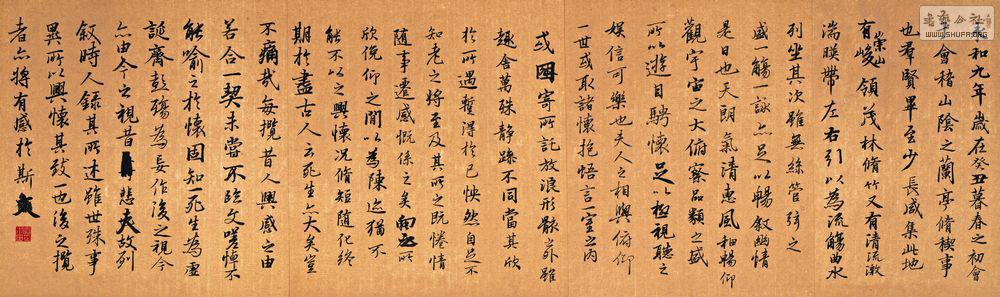 和九年歲在癸丑暮春之初會
會稽山陰之蘭亭脩稧事
也羣賢畢至少長咸集此地
有崇山峻領茂林脩竹又有清流激
湍暎帶左右引以為流觴曲水
列坐其次雖無絲管弦之
盛一觴一詠亦足以暢敘幽情
是日也天朗氣清惠風和暢仰
觀宇宙之大俯察品類之盛
所以遊目騁懷足以極視聽之
娛信可樂也夫人之相與俯仰
一世或取諸懷抱悟言一室之內
或因寄所託放浪形骸之外雖
趣舍萬殊靜躁不同當其欣
於所遇暫得於己怏然自足不
知老之將至及其所之既惓情
隨事遷感慨係之矣向之所
欣俛仰之間以為陳迹猶不
能不以之興懷況脩短隨化終
期於盡古人云死生亦大矣豈
不痛哉每攬昔人興感之由
若合一契未嘗不臨文嗟悼不
能喻之於懷固知一死生為虛
誕齊彭殤為妄作後之視今
亦由今之視昔悲夫故列
敘時人錄其所述雖世殊事
異所以興懷其致一也後之攬
者亦將有感於斯文
WWW.SHUFA.ORG